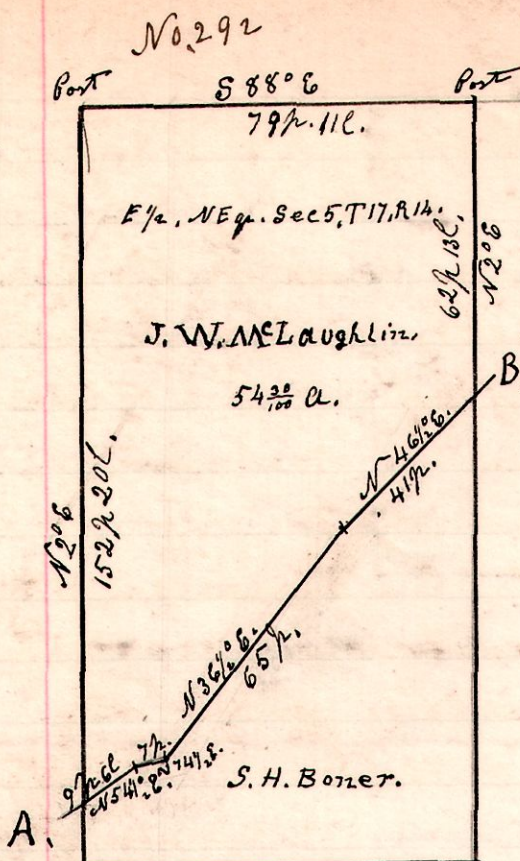 No. 292
Post
S 88° E
Post
79p. 11l.
E ½, NE qr. Sec 5, T 17, R 14.
62p 13l.
N 2° E
J. W. McLaughlin.
54 30/100 a.
B
N 46½° E.
41p.
N 2° E
152p 20l.
N 36½° E.
65p.
7p.
N 74½ E.
9p 6l
N 54½° E.
S. H. Boner.
A.